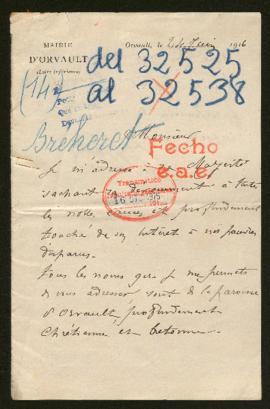 MAIRIE
D'ORVAULT
(Loire-Inférieure)
Orvault, le 2 Juin 1916
del 32525
al 32538
(14)
Breheret
Monsieur
Fecho
e.a.e.
Je m'adresse à Majesté
sachant
les nobles causes et profondément
touché de son intérêt à nos pauvres
disparus.
Tous les noms que je me permets
de vous adresser sont de la paroisse
d'Orvault, profondément
Chrétienne et bretonne.